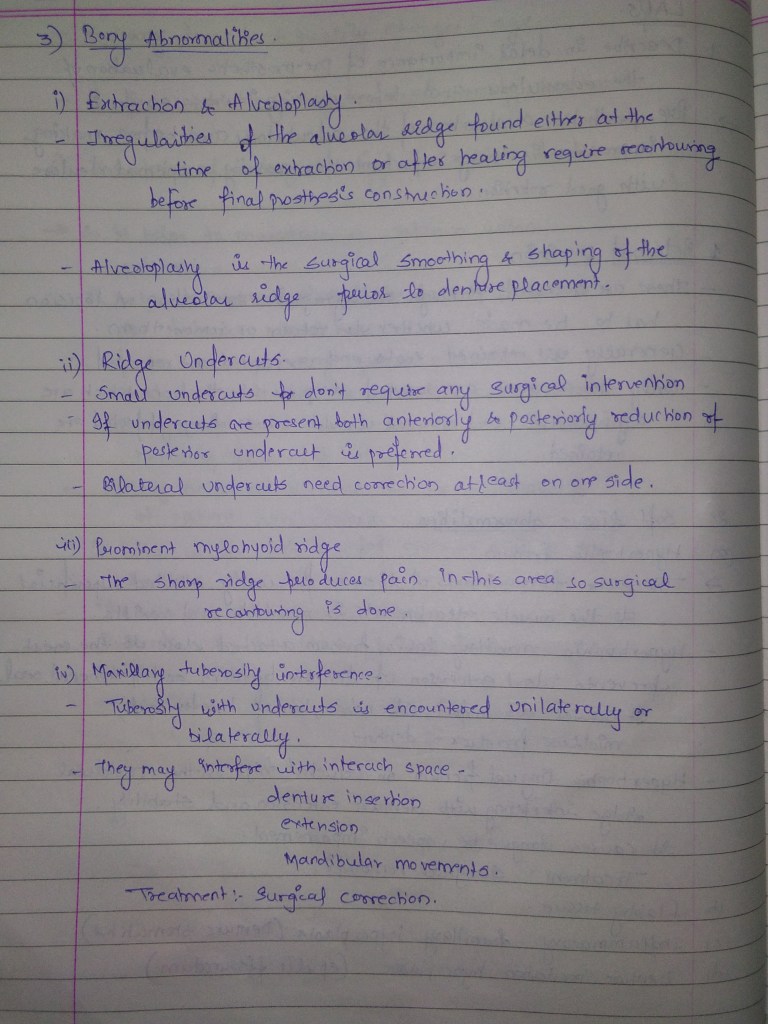 3) Bony Abnormalities.
i) Extraction & Alveoloplasty.
- Irregularities of the alveolar ridge found either at the
time of extraction or after healing require recontouring
before final prosthesis construction.
- Alveoloplasty is the surgical smoothing & shaping of the
alveolar ridge prior to denture placement.
ii) Ridge Undercuts.
- Small undercuts don't require any surgical intervention
- If undercuts are present both anteriorly & posteriorly reduction of
posterior undercut is preferred.
- Bilateral undercuts need correction atleast on one side.
iii) Prominent mylohyoid ridge
- The sharp ridge produces pain in this area so surgical
recontouring is done.
iv) Maxillary tuberosity interference.
- Tuberosity with undercuts is encountered unilaterally or
bilaterally.
- They may interfere with interach space -
denture insertion
extension
Mandibular movements.
Treatment:- Surgical correction.